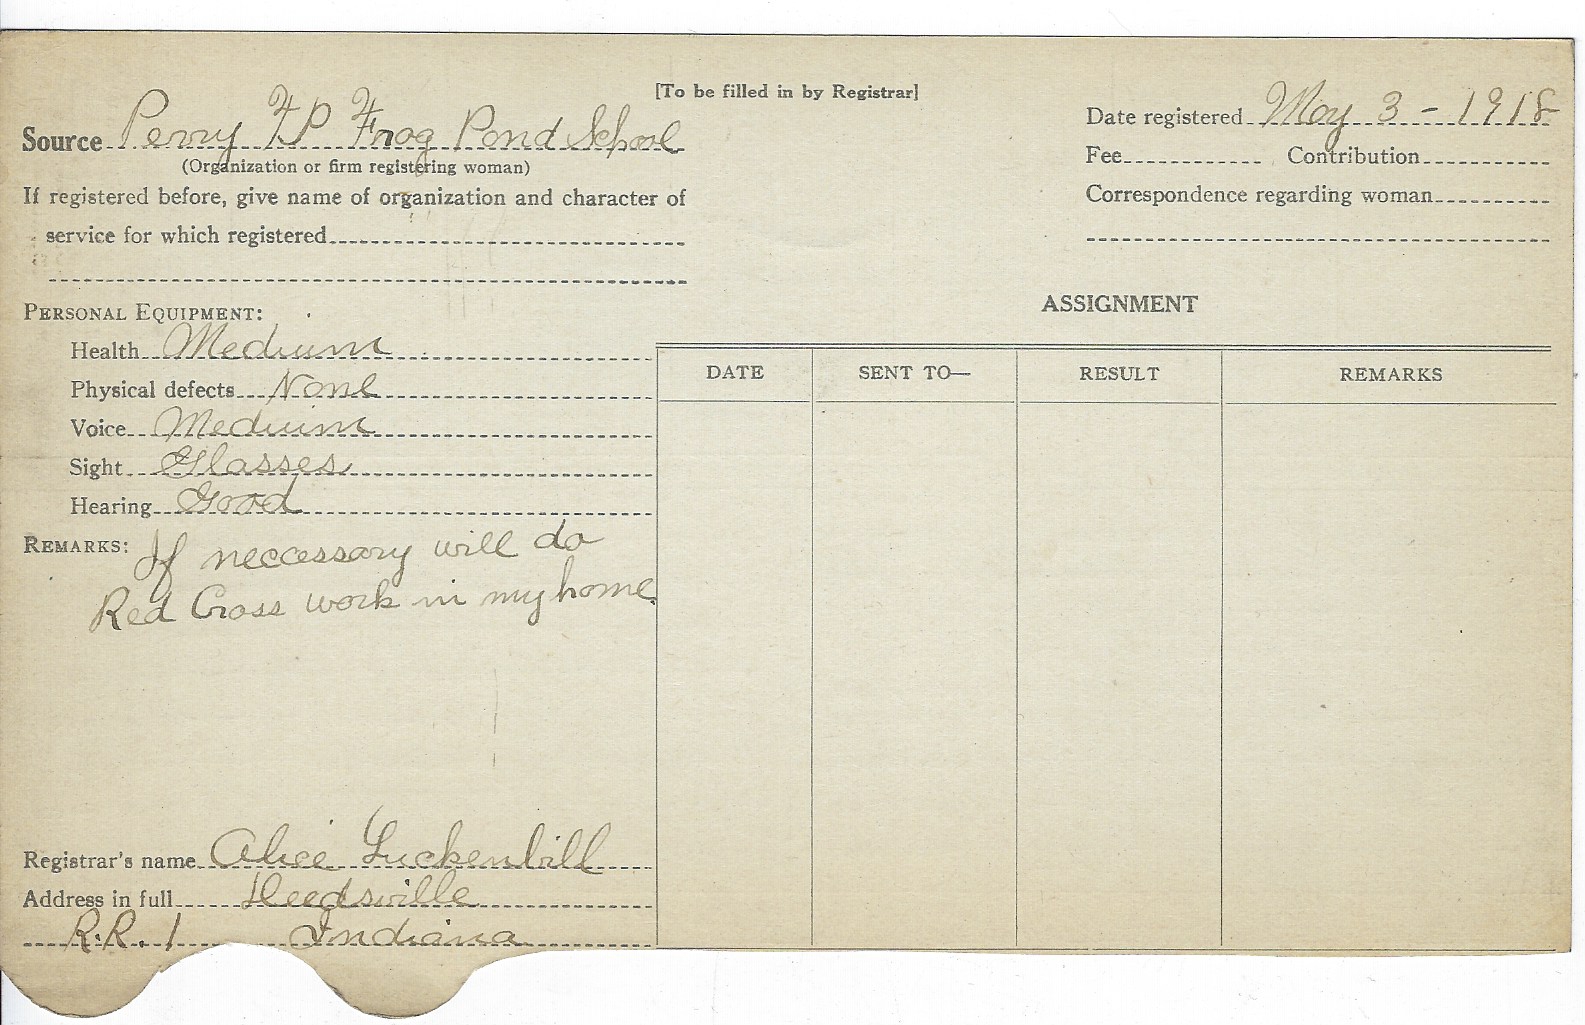 [To be filled in by Registrar]
Source Perry TP Frog Pond School
(Organization or firm registering woman)
If registered before, give name of organization and character of
service for which registered
Date registered May 3 - 1918
Fee Contribution
Correspondence regarding woman
PERSONAL EQUIPMENT:
Health Medium
Physical defects None
Voice Medium
Sight Glasses
Hearing Good
REMARKS: If neccessary will do
Red Cross work in my home.
Registrar's name Alice Luckenbill
Address in full Deedsville
R.R. 1 Indiana
ASSIGNMENT
DATE SENT TO— RESULT REMARKS